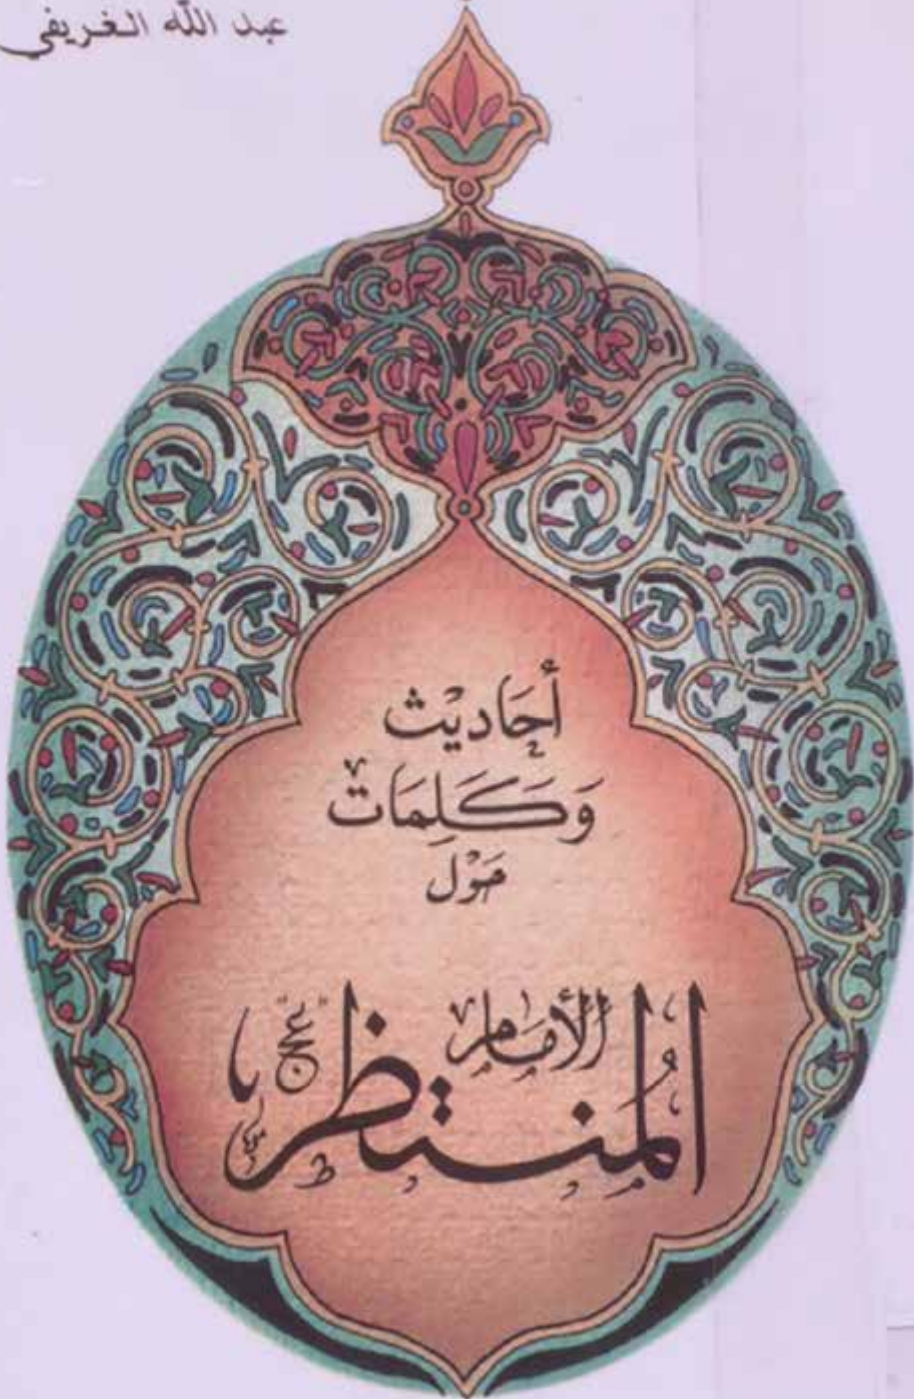 عبد الله الغريفي
أحَاديْث
وَكَلِمَات
حَوْل
الأمَام
المُنتظر "عج"